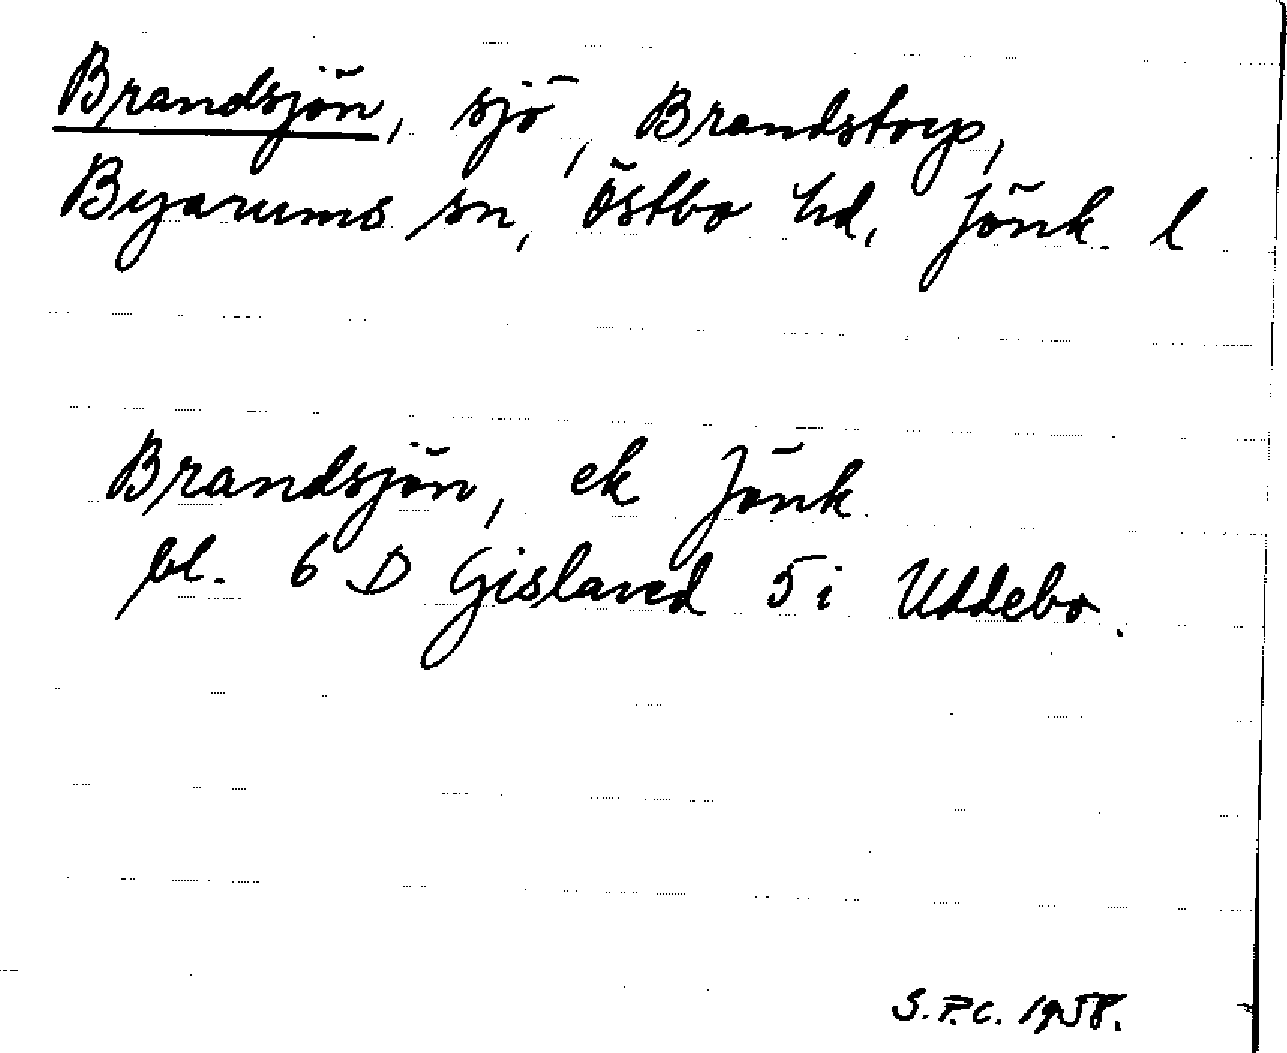 Brandsjön, sjö, Brandstorp,
Byarums sn, Östbo hd, Jönk. l
Brandsjön, ek Jönk.
bl. 6 D Gislaved 5 i Uddebo.
S.P.C. 1958.